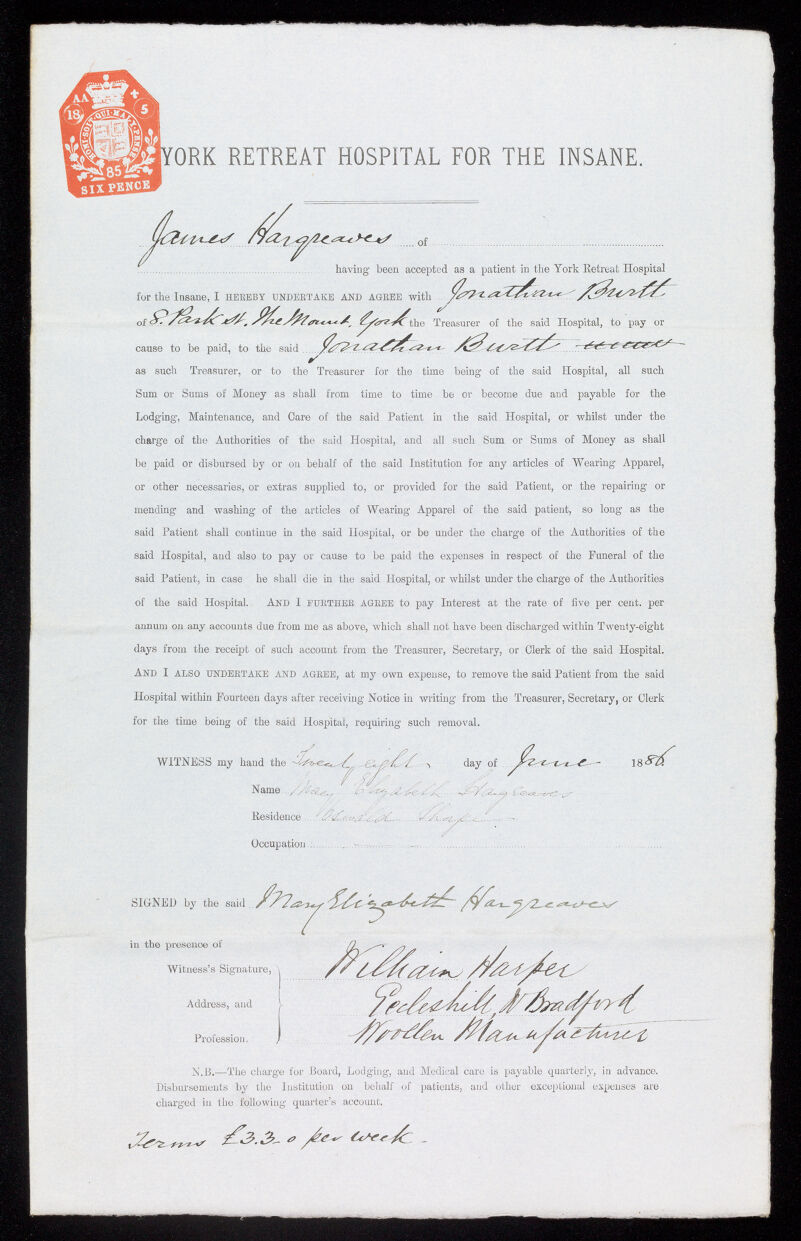 AA
18 5
HONI·SOIT·QUI·MAL·Y·PENSE
85
SIX PENCE
YORK RETREAT HOSPITAL FOR THE INSANE.
James Hargreaves of
having been accepted as a patient in the York Retreat Hospital
for the Insane, I HEREBY UNDERTAKE AND AGREE with Jonathan Burtt
of 8. Park St. The Mount, York the Treasurer of the said Hospital, to pay or
cause to be paid, to the said Jonathan Burtt
as such Treasurer, or to the Treasurer for the time being of the said Hospital, all such
Sum or Sums of Money as shall from time to time be or become due and payable for the
Lodging, Maintenance, and Care of the said Patient in the said Hospital, or whilst under the
charge of the Authorities of the said Hospital, and all such Sum or Sums of Money as shall
be paid or disbursed by or on behalf of the said Institution for any articles of Wearing Apparel,
or other necessaries, or extras supplied to, or provided for the said Patient, or the repairing or
mending and washing of the articles of Wearing Apparel of the said patient, so long as the
said Patient shall continue in the said Hospital, or be under the charge of the Authorities of the
said Hospital, and also to pay or cause to be paid the expenses in respect of the Funeral of the
said Patient, in case he shall die in the said Hospital, or whilst under the charge of the Authorities
of the said Hospital. AND I FURTHER AGREE to pay Interest at the rate of five per cent. per
annum on any accounts due from me as above, which shall not have been discharged within Twenty-eight
days from the receipt of such account from the Treasurer, Secretary, or Clerk of the said Hospital.
AND I ALSO UNDERTAKE AND AGREE, at my own expense, to remove the said Patient from the said
Hospital within Fourteen days after receiving Notice in writing from the Treasurer, Secretary, or Clerk
for the time being of the said Hospital, requiring such removal.
WITNESS my hand the Twenty eight day of June 1886.
Name Mary Elizabeth Hargreaves
Residence Thorpe
Occupation
SIGNED by the said Mary Elizabeth Hargreaves
in the presence of
Witness's Signature, William Harper
Address, and Eccleshill, N Bradford
Profession. Woollen Manufacturer
N.B.—The charge for Board, Lodging, and Medical care is payable quarterly, in advance.
Disbursements by the Institution on behalf of patients, and other exceptional expenses are
charged in the following quarter's account.
Terms £3.3.0 per week